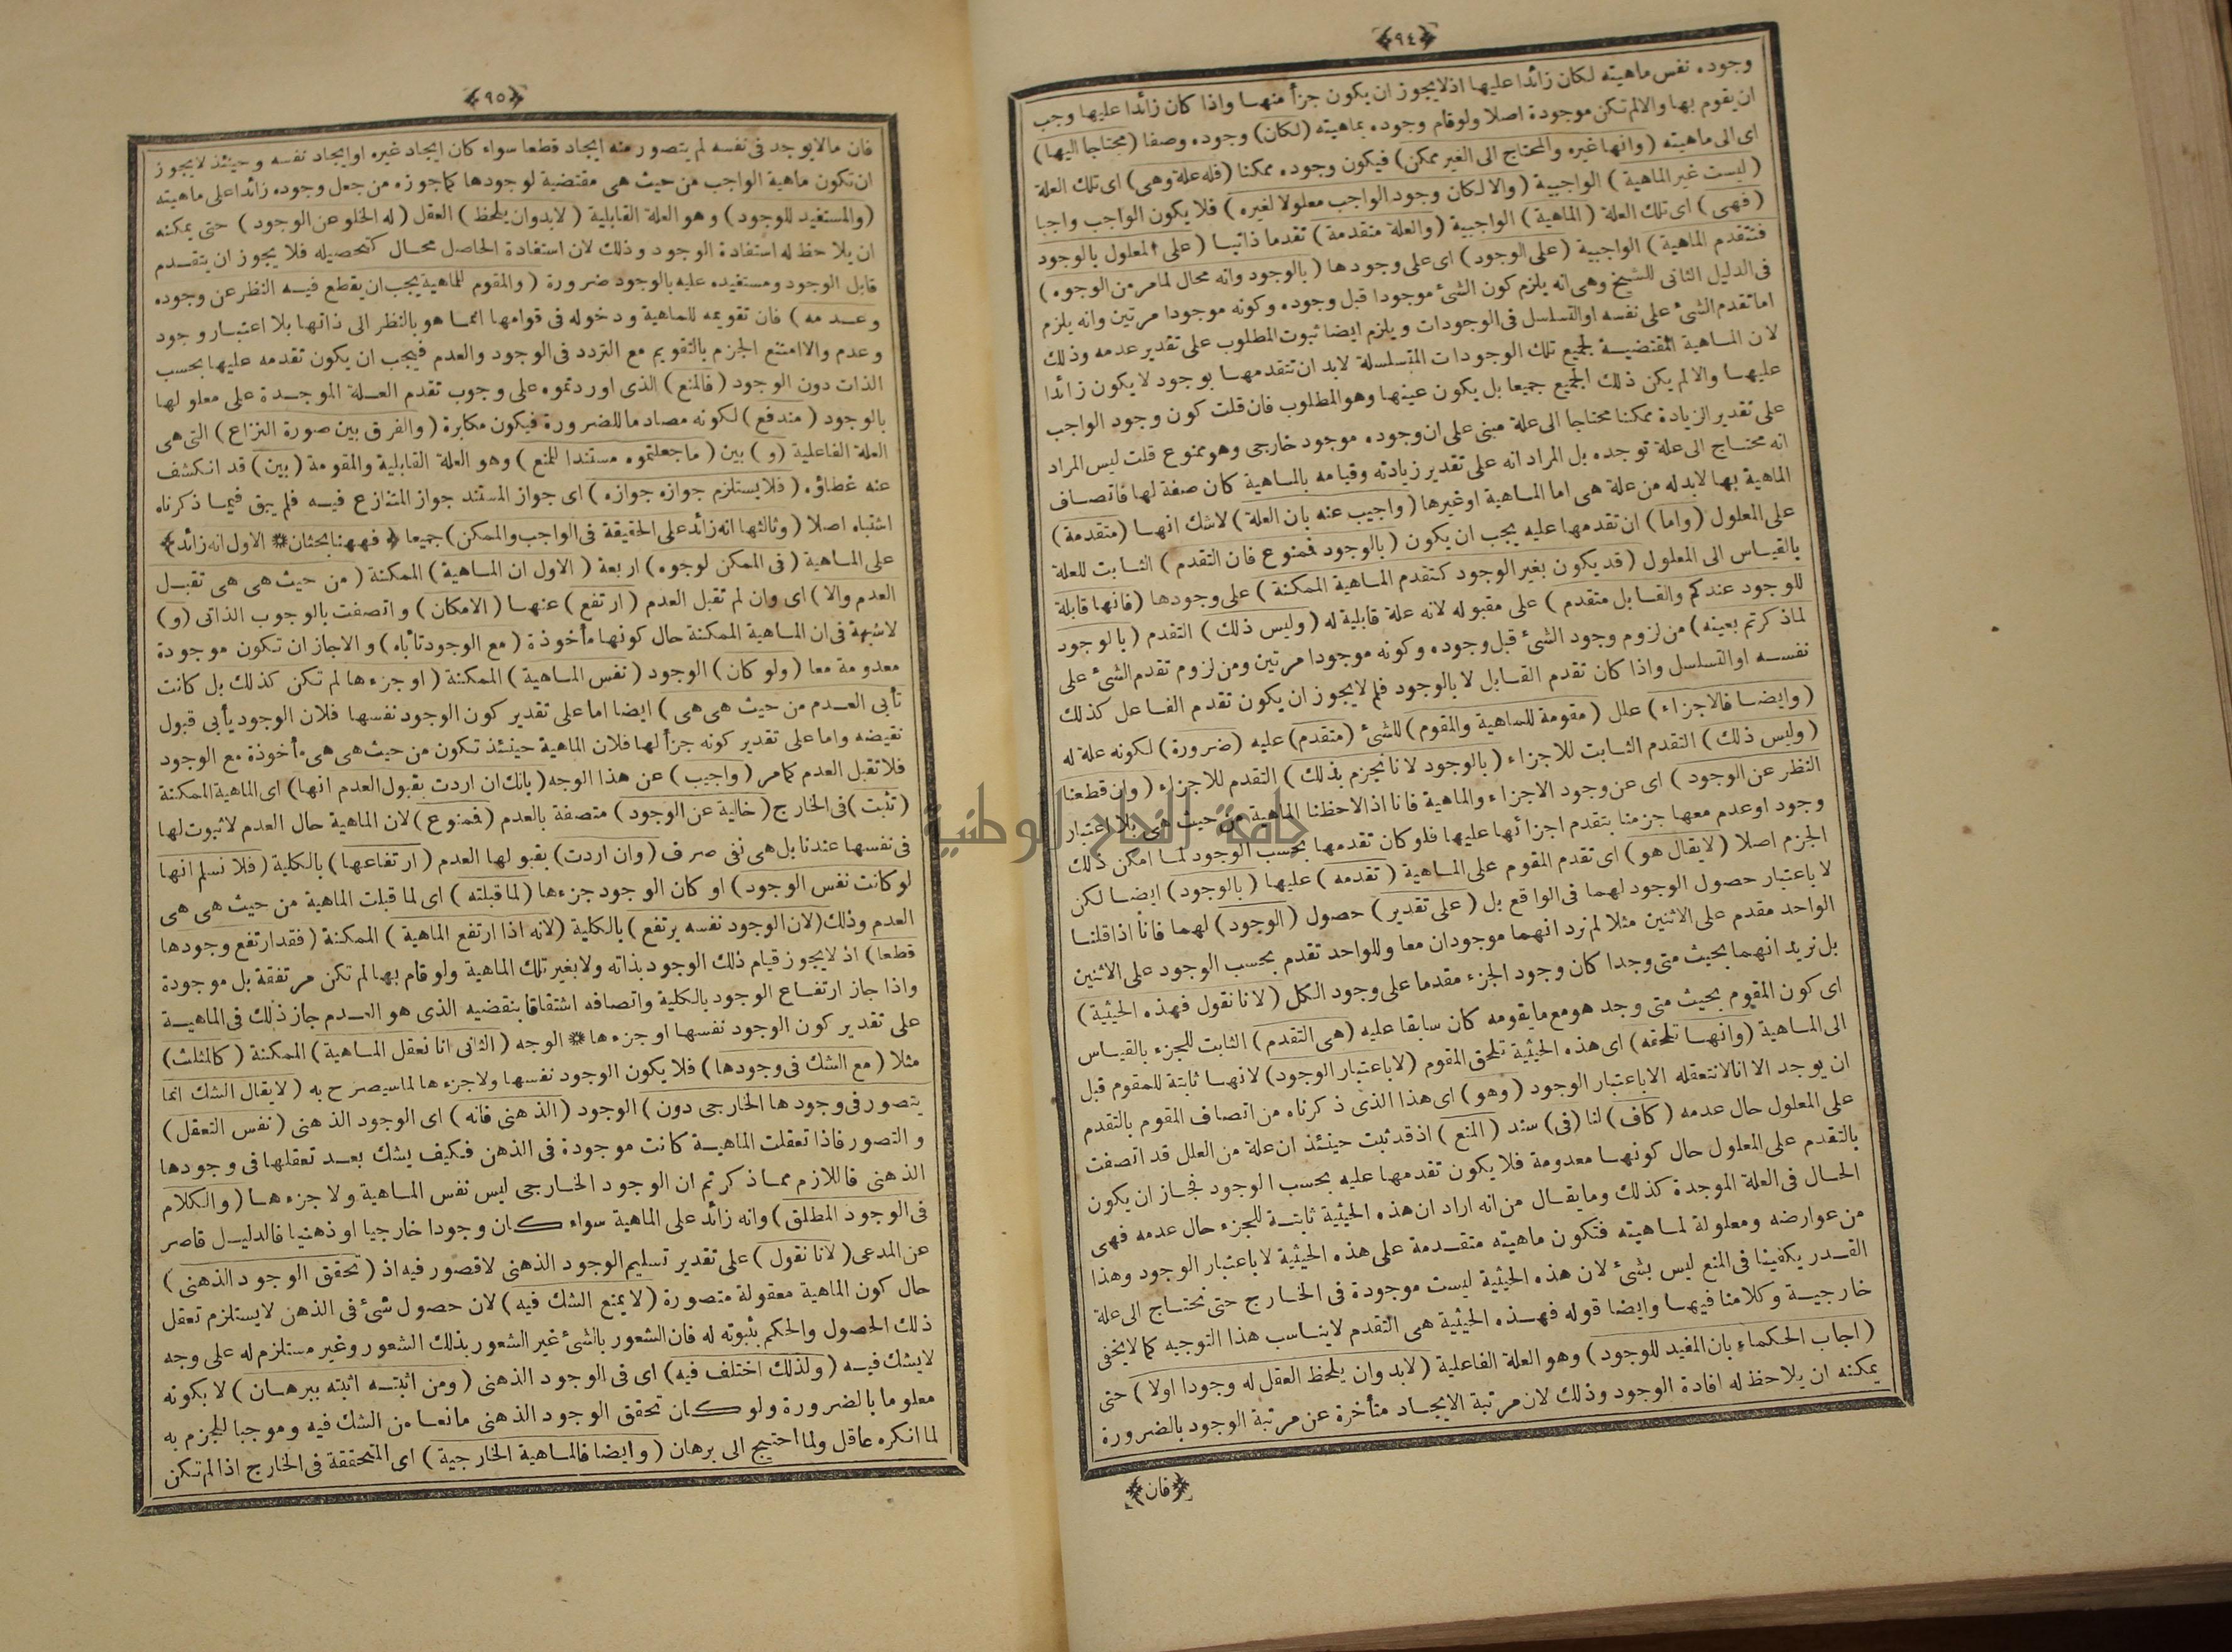 ﴿٩٤﴾
وجوده نفس ماهيته لكان زائدا عليها اذلايجوز ان يكون جزأ منهـا واذا كان زائدا عليها وجب
ان يقوم بها والالم تكن موجودة اصلا ولوقام وجوده بماهيته (لكان) وجوده وصفا (محتاجا اليها)
اى الى ماهيته (وانها غيره والمحتاج الى الغير ممكن) فيكون وجوده ممكنا (فله علة وهى) اى تلك العلة
(ليست غير الماهية) الواجبية (والا لكان وجود الواجب معلولا لغيره) فلا يكون الواجب واجبا
(فهى) اى تلك العلة (الماهية) الواجبية (والعلة متقدمة) تقدما ذاتيا (على المعلول بالوجود
فتتقدم الماهية) الواجبية (على الوجود) اى على وجودها (بالوجود وانه محال لمامر من الوجوه)
فى الدليل الثانى للشيخ وهى انه يلزم كون الشئ موجودا قبل وجوده وكونه موجودا مرتين وانه يلزم
اما تقدم الشئ على نفسه او التسلسل فى الوجودات ويلزم ايضا ثبوت المطلوب على تقدير عدمه وذلك
لان المـاهية المقتضيـة لجميع تلك الوجودات المتسلسلة لابد ان تتقدمهـا بوجود لا يكون زائدا
عليهـا والا لم يكن ذلك الجميع جميعا بل يكون عينها وهو المطلوب فان قلت كون وجود الواجب
على تقدير الزيادة ممكنا محتاجا الى علة مبنى على ان وجوده موجود خارجى وهو ممنوع قلت ليس المراد
انه محتـاج الى علة توجده بل المراد انه على تقدير زيادته وقيامه بالمـاهية كان صفة لها فاتصـاف
الماهية بها لابد له من علة هى اما المـاهية او غيرها (واجيب عنه بان العلة) لاشك انهـا (متقدمة)
على المعلول (واما) ان تقدمها عليه يجب ان يكون (بالوجود فممنوع فان التقدم) الثـابت للعلة
بالقيـاس الى المعلول (قد يكون بغير الوجود كتقدم المـاهية الممكنة) على وجودها (فانها قابلة
للوجود عندكم والقـابل متقدم) على مقبوله لانه علة قابلية له (وليس ذلك) التقدم (بالوجود
لماذكرتم بعينه) من لزوم وجود الشئ قبل وجوده وكونه موجودا مرتين ومن لزوم تقدم الشئ على
نفسـه او التسلسل واذا كان تقدم القـابل لا بالوجود فلم لايجوز ان يكون تقدم الفـاعل كذلك
(وايضـا فالاجزاء) علل (مقومة للماهية والمقوم) للشئ (متقدم) عليه (ضرورة) لكونه علة له
(وليس ذلك) التقدم الثـابت للاجزاء (بالوجود لانا نجزم بذلك) التقدم للاجزاء (وان قطعنا
النظر عن الوجود) اى عن وجود الاجزاء والماهية فانا اذ الاحظنا الماهية من حيث هى بلا اعتبار
وجود اوعدم معها جزمنا بتقدم اجزائها عليها فلو كان تقدمها بحسب الوجود لمـا امكن ذلك
الجزم اصلا (لايقال هو) اى تقدم المقوم على المـاهية (تقدمه) عليها (بالوجود) ايضـا لكن
لا باعتبار حصول الوجود لهما فى الواقع بل (على تقدير) حصول (الوجود) لهما فانا اذا قلنـا
الواحد مقدم على الاثنين مثلا لم نرد انهما موجودان معا وللواحد تقدم بحسب الوجود على الاثنين
بل نريد انهما بحيث متى وجدا كان وجود الجزء مقدما على وجود الكل (لانا نقول فهذه الحيثية)
اى كون المقوم بحيث متى وجد هو مع ما يقومه كان سابقا عليه (هى التقدم) الثابت للجزء بالقيـاس
الى المـاهية (وانهـا تلحقه) اى هذه الحيثية تلحق المقوم (لا باعتبار الوجود) لانهـا ثابتة للمقوم قبل
ان يوجد الا انا لانتعقله الا باعتبار الوجود (وهو) اى هذا الذى ذكرناه من اتصاف المقوم بالتقدم
على المعلول حال عدمه (كاف) لنا (فى) سند (المنع) اذ قد ثبت حينئذ ان علة من العلل قد اتصفت
بالتقدم على المعلول حال كونهـا معدومة فلا يكون تقدمها عليه بحسب الوجود فجـاز ان يكون
الحـال فى العلة الموجدة كذلك وما يقـال من انه اراد ان هذه الحيثية ثابتـة للجزء حال عدمه فهى
من عوارضه ومعلولة لمـاهيته فتكون ماهيته متقـدمة على هذه الحيثية لا باعتبار الوجود وهذا
القـدر يكفينا فى المنع ليس بشئ لان هذه الحيثية ليست موجودة فى الخـارج حتى تحتـاج الى علة
خارجيـة وكلامنا فيهـا وايضا قوله فهـذه الحيثية هى التقدم لايناسب هذا التوجيه كما لايخفى
(اجاب الحكماء بان المفيد للوجود) وهو العلة الفاعلية (لابد وان يلحظ العقل له وجودا اولا) حتى
يمكنه ان يلاحظ له افادة الوجود وذلك لان مرتبة الايجـاد متأخرة عن مرتبة الوجود بالضرورة
﴿فان﴾
﴿٩٥﴾
فان مالايوجد فى نفسه لم يتصور منه ايجاد قطعا سواء كان ايجاد غيره او ايجاد نفسه وحينئذ لايجوز
ان تكون ماهية الواجب من حيث هى مقتضية لوجودها كماجوزه من جعل وجوده زائدا على ماهيته
(والمستفيد للوجود) وهو العلة القابلية (لابد وان يلحظ) العقل (له الخلو عن الوجود) حتى يمكنه
ان يلاحظ له استفادة الوجود وذلك لان استفادة الحاصل محـال كتحصيله فلا يجوز ان يتقـدم
قابل الوجود ومستفيده عليه بالوجود ضرورة (والمقوم للماهية يجب ان يقطع فيـه النظر عن وجوده
وعـدمه) فان تقويمه للماهية ودخوله فى قوامها انمـا هو بالنظر الى ذاتها بلا اعتبـار وجود
وعدم والا امتنع الجزم بالتقويم مع التردد فى الوجود والعدم فيجب ان يكون تقدمه عليها بحسب
الذات دون الوجود (فالمنع) الذى اوردتموه على وجوب تقدم العـلة الموجـدة على معلولها
بالوجود (مندفع) لكونه مصادما للضرورة فيكون مكابرة (والفرق بين صورة النزاع) التى هى
العلة الفاعلية (و) بين (ماجعلتموه مستندا للمنع) وهو العلة القابلية والمقومة (بين) قد انكشف
عنه غطاؤه (فلا يستلزم جوازه جوازه) اى جواز المستند جواز المتنازع فيـه فلم يبق فيمـا ذكرناه
اشتباه اصلا (وثالثها انه زائد على الحقيقة فى الواجب والممكن) جميعا ﴿فههنا بحثان * الاول انه زائد﴾
على المـاهية (فى الممكن لوجوه) اربعة (الاول ان المـاهية) الممكنة (من حيث هى هى تقبـل
العدم والا) اى وان لم تقبل العدم (ارتفع) عنهـا (الامكان) واتصفت بالوجوب الذاتى (و)
لاشبهة فى ان المـاهية الممكنة حال كونها مأخوذة (مع الوجود تأباه) والا جاز ان تكون موجودة
معدومة معا (ولو كان) الوجود (نفس المـاهية) الممكنة (او جزءها لم تكن كذلك بل كانت
تأبى العـدم من حيث هى هى) ايضا اما على تقدير كون الوجود نفسها فلان الوجود يأبى قبول
نقيضه واما على تقدير كونه جزأ لها فلان الماهية حينئذ تكون من حيث هى هى مأخوذة مع الوجود
فلا تقبل العدم كمامر (واجيب) عن هذا الوجه (بانك ان اردت بقبول العدم انها) اى الماهية الممكنة
(تثبت) فى الخارج (خالية عن الوجود) متصفة بالعدم (فممنوع) لان الماهية حال العدم لاثبوت لها
فى نفسها عندنا بل هى نفى صرف (وان اردت) بقبولها العدم (ارتفاعها) بالكلية (فلا نسلم انها
لو كانت نفس الوجود) او كان الوجود جزءها (لما قبلته) اى لما قبلت الماهية من حيث هى هى
العدم وذلك (لان الوجود نفسه يرتفع) بالكلية (لانه اذا ارتفع الماهية) الممكنة (فقد ارتفع وجودها
قطعا) اذ لايجوز قيام ذلك الوجود بذاته ولا بغير تلك الماهية ولو قام بها لم تكن مرتفقة بل موجودة
واذا جاز ارتفـاع الوجود بالكلية واتصافه اشتقاقا بنقضيه الذى هو العـدم جاز ذلك فى الماهيـة
على تقدير كون الوجود نفسها او جزءها * الوجه (الثانى انا نعقل المـاهية) الممكنة (كالمثلث)
مثلا (مع الشك فى وجودها) فلا يكون الوجود نفسها ولا جزءها لما سيصرح به (لايقال الشك انما
يتصور فى وجودها الخارجى دون) الوجود (الذهنى فانه) اى الوجود الذهنى (نفس التعقل)
والتصور فاذا تعقلت الماهيـة كانت موجودة فى الذهن فكيف يشك بعـد تعقلها فى وجودها
الذهنى فاللازم ممـا ذكرتم ان الوجود الخـارجى ليس نفس المـاهية ولا جزءهـا (والكلام
فى الوجود المطلق) وانه زائد على الماهية سواء كـان وجودا خارجيا او ذهنيا فالدليـل قاصر
عن المدعى (لانا نقول) على تقدير تسليم الوجود الذهنى لاقصور فيه اذ (تحقق الوجود الذهنى)
حال كون الماهية معقولة متصورة (لايمنع الشك فيه) لان حصول شئ فى الذهن لايستلزم تعقل
ذلك الحصول والحكم بثبوته له فان الشعور بالشئ غير الشعور بذلك الشعور وغير مستلزم له على وجه
لايشك فيـه (ولذلك اختلف فيه) اى فى الوجود الذهنى (ومن اثبتـه اثبته ببرهـان) لابكونه
معلوما بالضرورة ولو كـان تحقق الوجود الذهنى مانعـا من الشك فيه وموجبا للجزم به
لما انكره عاقل ولما احتيج الى برهان (وايضا فالمـاهية الخارجية) اى المتحققة فى الخارج اذا لم تكن
جامعة النجاح الوطنية